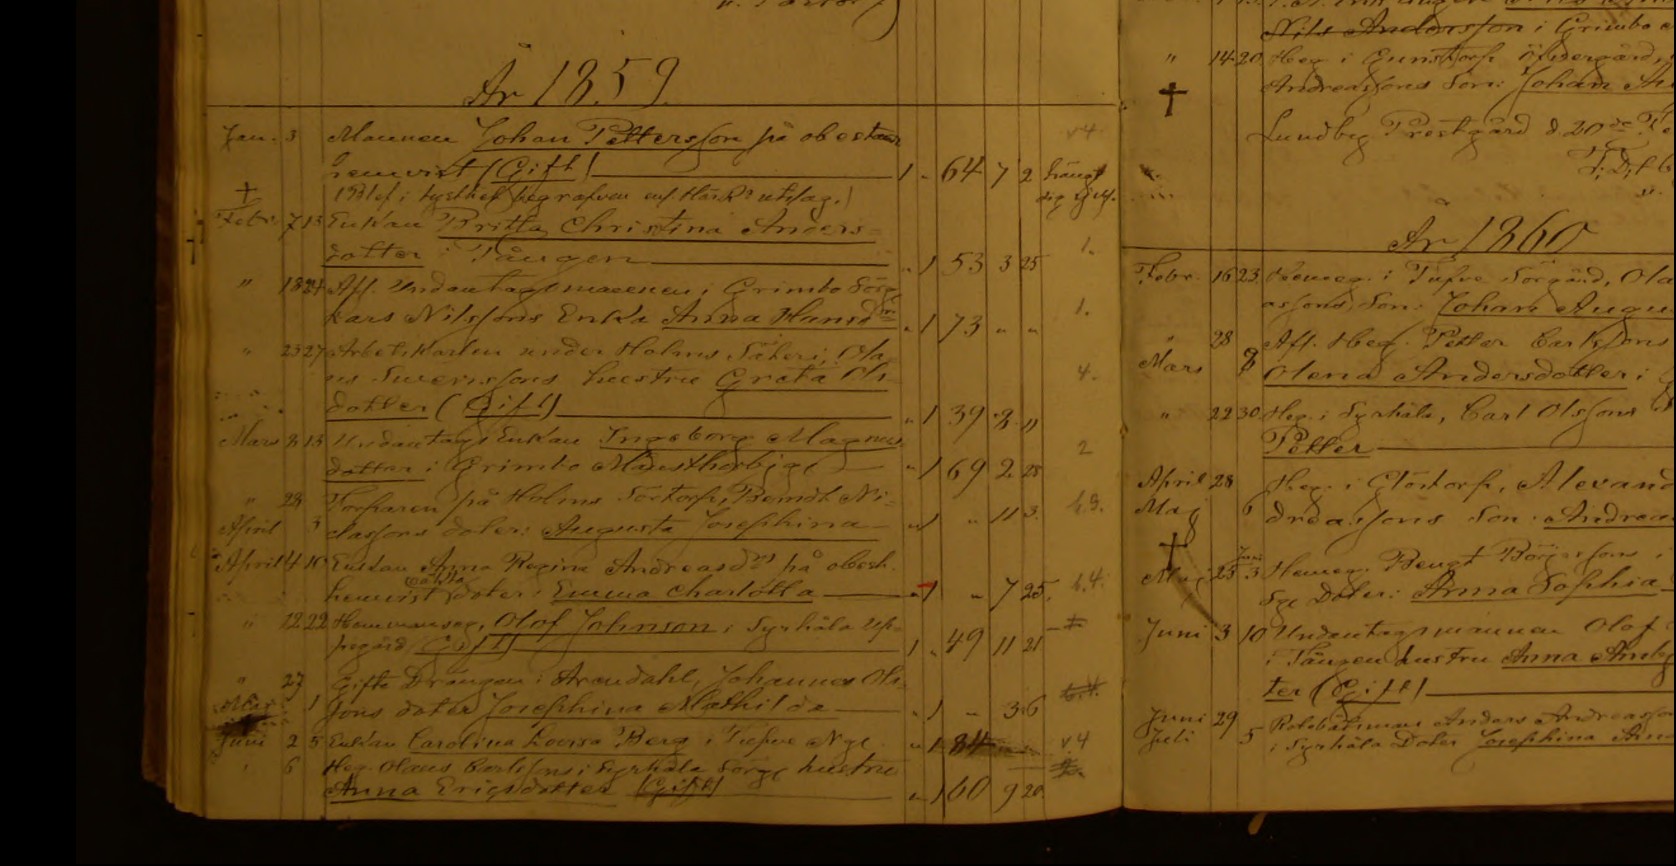 År 1859.
Jan. 3 Mannen Johan Pettersson på obestämd v4.
hemvist (Gift) 1 - 64 7 2 hängt
(Blef i tysthet begrafven enl. Härads utslag.) sig sjelf.
Febr. 7 13 Enkan Britta Christina Anders-
dotter i Tången " 1 53 3 25 1.
" 18 24 Afl. Undantagsmannen i Grimbo Sörg.
Lars Nilssons Enka Anna Hansdr " 1 73 " " 1.
" 23 27 Arbetskarlen under Holms Säteri, Ola
us Svenssons hustru Greta Ols
dotter (Gift) " 1 39 8 11 4.
Mars 8 13 Undantags Enkan Ingeborg Magnus
dotter i Grimbo " 1 69 2 25 2
" 28 Torparen på Holms Berndt Ni-
April 3 classons doter: Augusta Josephina " 1 " 11 3. 13.
April 4 10 Enkan Anna Regina Andreasdrs på obest.
hemvist oäkta doter: Emma Charlotta " 1 " 7 25. 14.
" 12 22 Hemmanseg. Olof Johnson i Syrhåla Up-
pegård (Gift) 1 " 49 11 21
" 27 Gifte Drängen i Arendahl, Johannes Ols-
Maj 1 sons doter Josephina Mathilda " 1 " 3 6
Juni 2 5 Enkan Carolina Lovisa Berg i Tufve Nyg. " 1 84 v4
" 6 Heg. Olaus Carlssons i Syrhåla Sörg. hustru
Anna Ericsdotter (Gift) " 1 60 9 20.
Nils Andersson i Grimbo
" 14 20 Heg. i Gunstorp Östergård,
Andreassons Son: Johan An
Lundby Prestgård d. 20de Fe
År 1860
Febr. 16 23 Hemeg. i Tufve Sörgård, Ola
assons Son: Johan Augu
" 28 Afl. Heg. Petter Carlssons
Mars 8 Olena Andersdotter i
" 22 30 Heg. i Syrhåla, Carl Olssons
Petter
April 28 Heg. i Glöstorp, Alexand
Maj 6 dreassons Son: Andrea
Juni
Maj 25 3 Hemeg. Bengt Börjessons i
Sg. Doter: Anna Sophia
Juni 3 10 Undantagsmannen Olof
i Tången hustru Anna
ter (Gift)
Juni 29 Rotebåtsman Anders Andreasso
Juli 5 i Syrhåla Doter Josephina